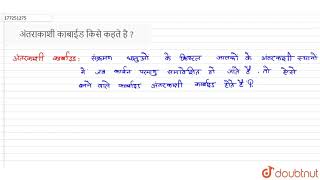 177251275
अंतराकाशी कार्बाईड किसे कहते है ?
अंतरकाशी कार्बाइड: संक्रमण धातुओं के क्रिस्टल जालकों के अंतराकाशी स्थानों
में जब कार्बन परमाणु समावेशित हो जाते है , तो ऐसे
बनने वाले कार्बाइड अंतराकाशी कार्बाइड होते है ।
doubtnut